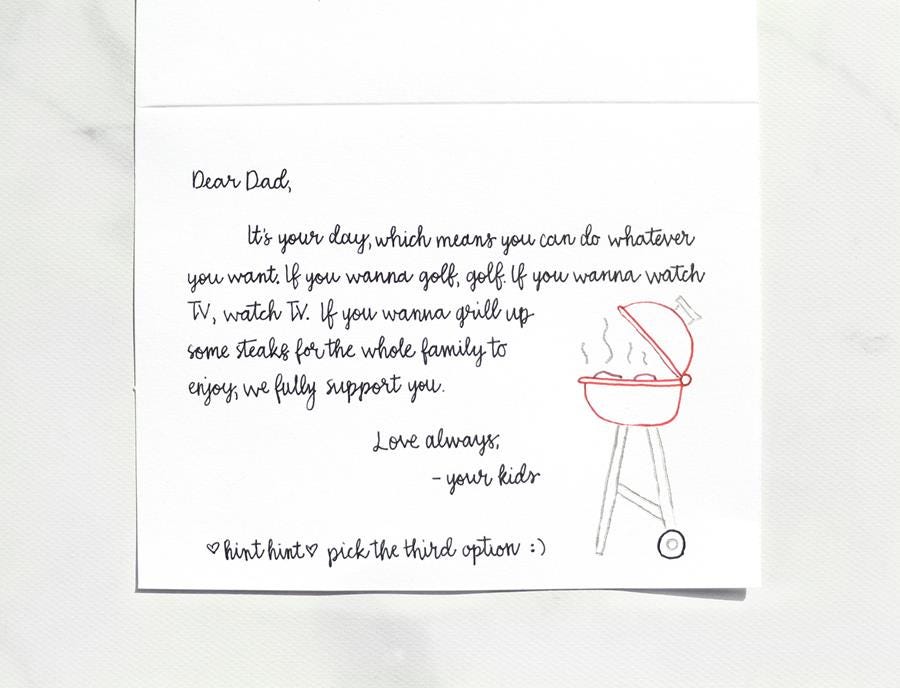 Dear Dad,
It's your day, which means you can do whatever
you want. If you wanna golf, golf. If you wanna watch
TV, watch TV. If you wanna grill up
some steaks for the whole family to
enjoy, we fully support you.
Love always,
- your kids
♡hint hint♡ pick the third option :)